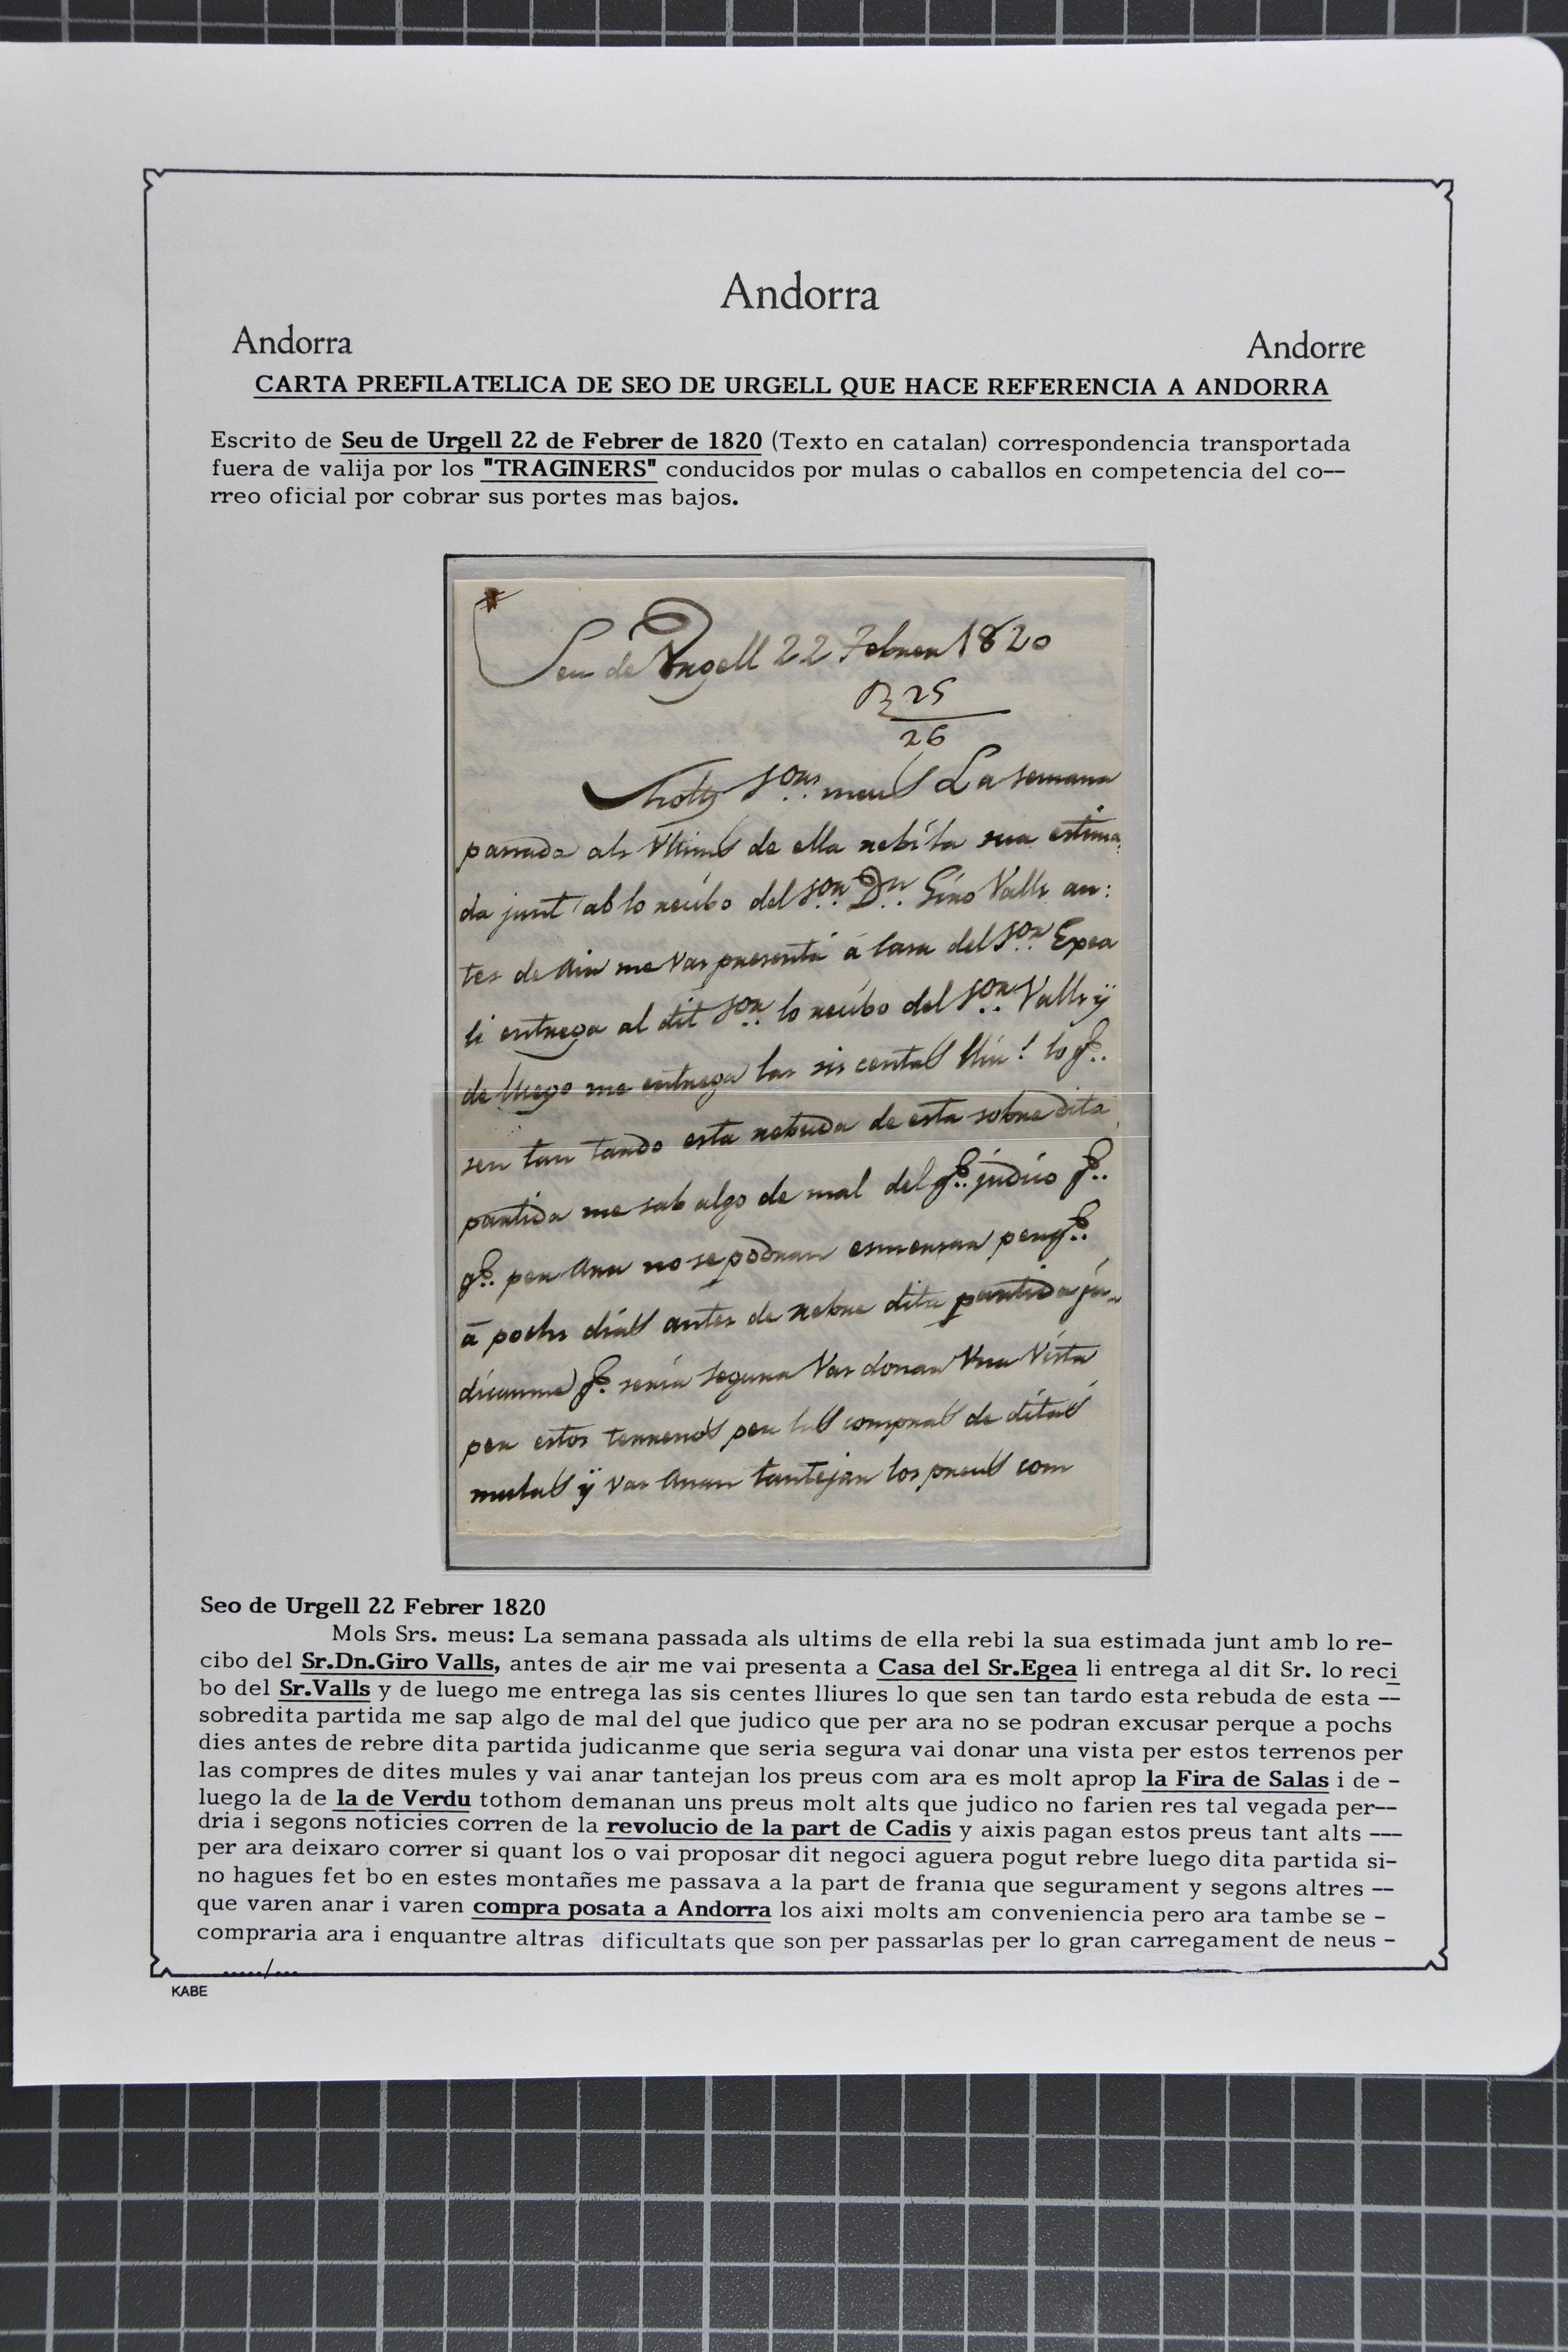 Andorra
Andorra Andorre
CARTA PREFILATELICA DE SEO DE URGELL QUE HACE REFERENCIA A ANDORRA
Escrito de Seu de Urgell 22 de Febrer de 1820 (Texto en catalan) correspondencia transportada
fuera de valija por los "TRAGINERS" conducidos por mulas o caballos en competencia del co--
rreo oficial por cobrar sus portes mas bajos.
Seu de Urgell 22 Febrer 1820
R 25
26
Molts Sors. meus La semana
passada als Ultims de ella rebi la sua estima
da junt ab lo recibo del Sor. Dn. Giro Valls an:
tes de Air me Vas presentá á Casa del Sor. Egea
li entrega al dit Sor. lo recibo del Sor. Valls ÿ
de luego me entrega las sis centas lliu.! lo q.e
sen tan tardo esta rebuda de esta sobredita
partida me sab algo de mal del q.e judico q.e
q.e per Ara no se podran esmersar perq.e
á pochs dias antes de rebre dita partida ju
dicanme q.e seria segura Vas donar Una Vista
per estos terrenos per las compras de ditas
mulas ÿ Vas Anar tantejan los preus com
Seo de Urgell 22 Febrer 1820
Mols Srs. meus: La semana passada als ultims de ella rebi la sua estimada junt amb lo re-
cibo del Sr.Dn.Giro Valls, antes de air me vai presenta a Casa del Sr.Egea li entrega al dit Sr. lo reci
bo del Sr.Valls y de luego me entrega las sis centes lliures lo que sen tan tardo esta rebuda de esta --
sobredita partida me sap algo de mal del que judico que per ara no se podran excusar perque a pochs
dies antes de rebre dita partida judicanme que seria segura vai donar una vista per estos terrenos per
las compres de dites mules y vai anar tantejan los preus com ara es molt aprop la Fira de Salas i de -
luego la de la de Verdu tothom demanan uns preus molt alts que judico no farien res tal vegada per--
dria i segons noticies corren de la revolucio de la part de Cadis y aixis pagan estos preus tant alts ---
per ara deixaro correr si quant los o vai proposar dit negoci aguera pogut rebre luego dita partida si-
no hagues fet bo en estes montañes me passava a la part de frania que segurament y segons altres --
que varen anar i varen compra posata a Andorra los aixi molts am conveniencia pero ara tambe se -
compraria ara i enquantre altras dificultats que son per passarlas per lo gran carregament de neus -
...../...
KABE